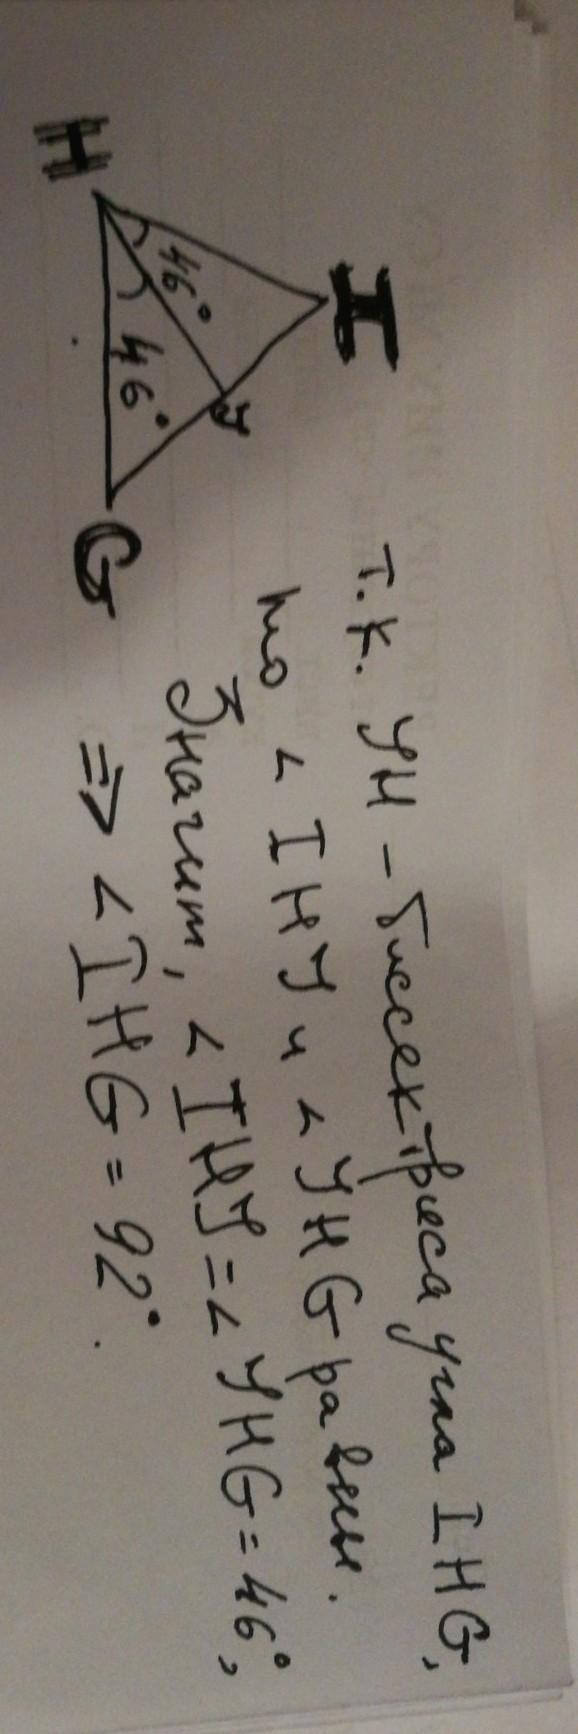 I
H
46°
46°
У
G
т.к. УН - биссектриса угла IHG,
то ∠ IHУ и ∠ УHG равны.
Значит, ∠ IHУ = ∠ УHG = 46°,
⇒ ∠ IHG = 92°.